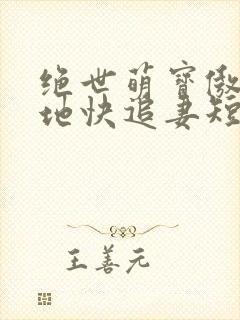 绝世萌宝傲
地快追妻短
王善元